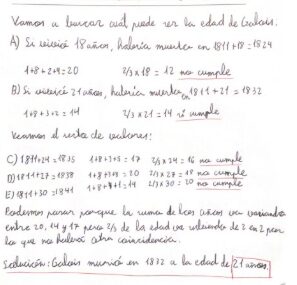 Vamos a buscar cuál puede ser la edad de Galois.
A) Si vivió 18 años, habría muerto en 1811+18=1829
1+8+2+9=20 2/3×18 = 12 no cumple
B) Si vivió 21 años, habría muerto en 1811+21=1832
1+8+3+2=14 2/3×21=14 sí cumple
Veamos el resto de valores:
C) 1811+24=1835 1+8+3+5=17 2/3×24=16 no cumple
D) 1811+27=1838 1+8+3+8=20 2/3×27=18 no cumple
E) 1811+30=1841 1+8+4+1=14 2/3×30=20 no cumple
Podemos parar porque la suma de los años va variando
entre 20, 14 y 17 pero 2/3 de la edad va subiendo de 2 en 2 por
lo que no habrá otra coincidencia.
Solución: Galois murió en 1832 a la edad de 21 años.